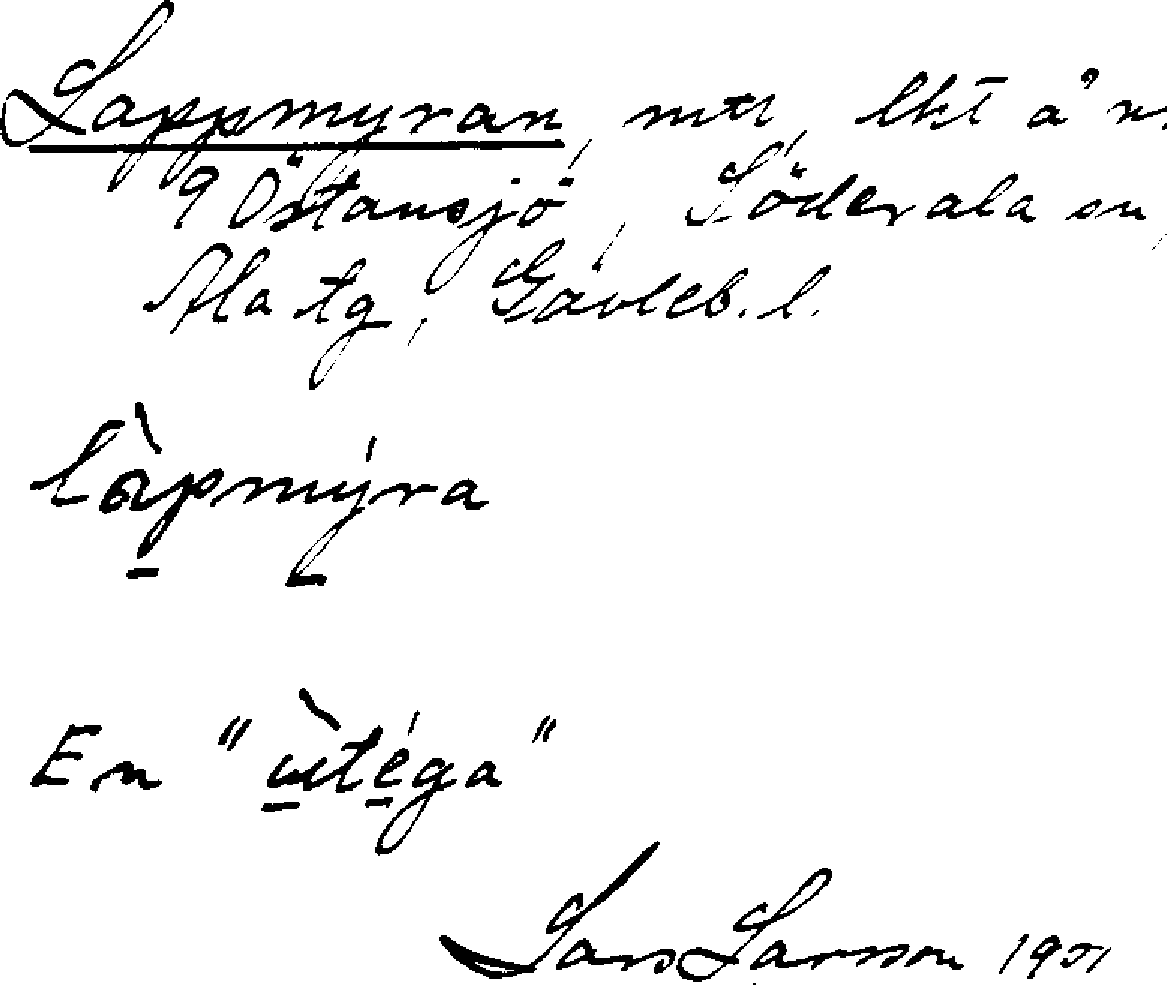 Lappmyran, mtr, lkt å nr
9 Östansjö, Söderala sn,
Ala tg, Gävleb. l.
làpmýra
En "ùtéga"
Lars Larsson 1951